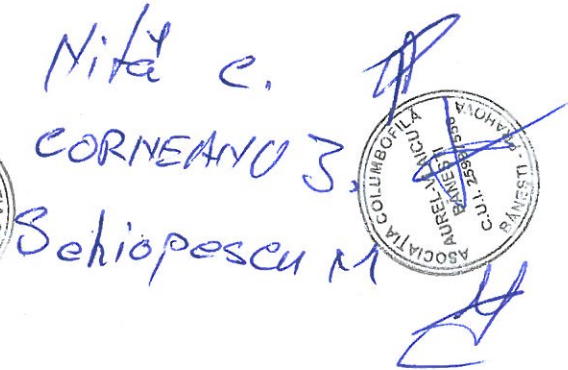 Niță C.
CORNEANU J.
Schiopescu M
ASOCIAȚIA COLUMBOFILĂ
AUREL VLAICU
BĂNEȘTI
C.U.I.
BĂNEȘTI - PRAHOVA